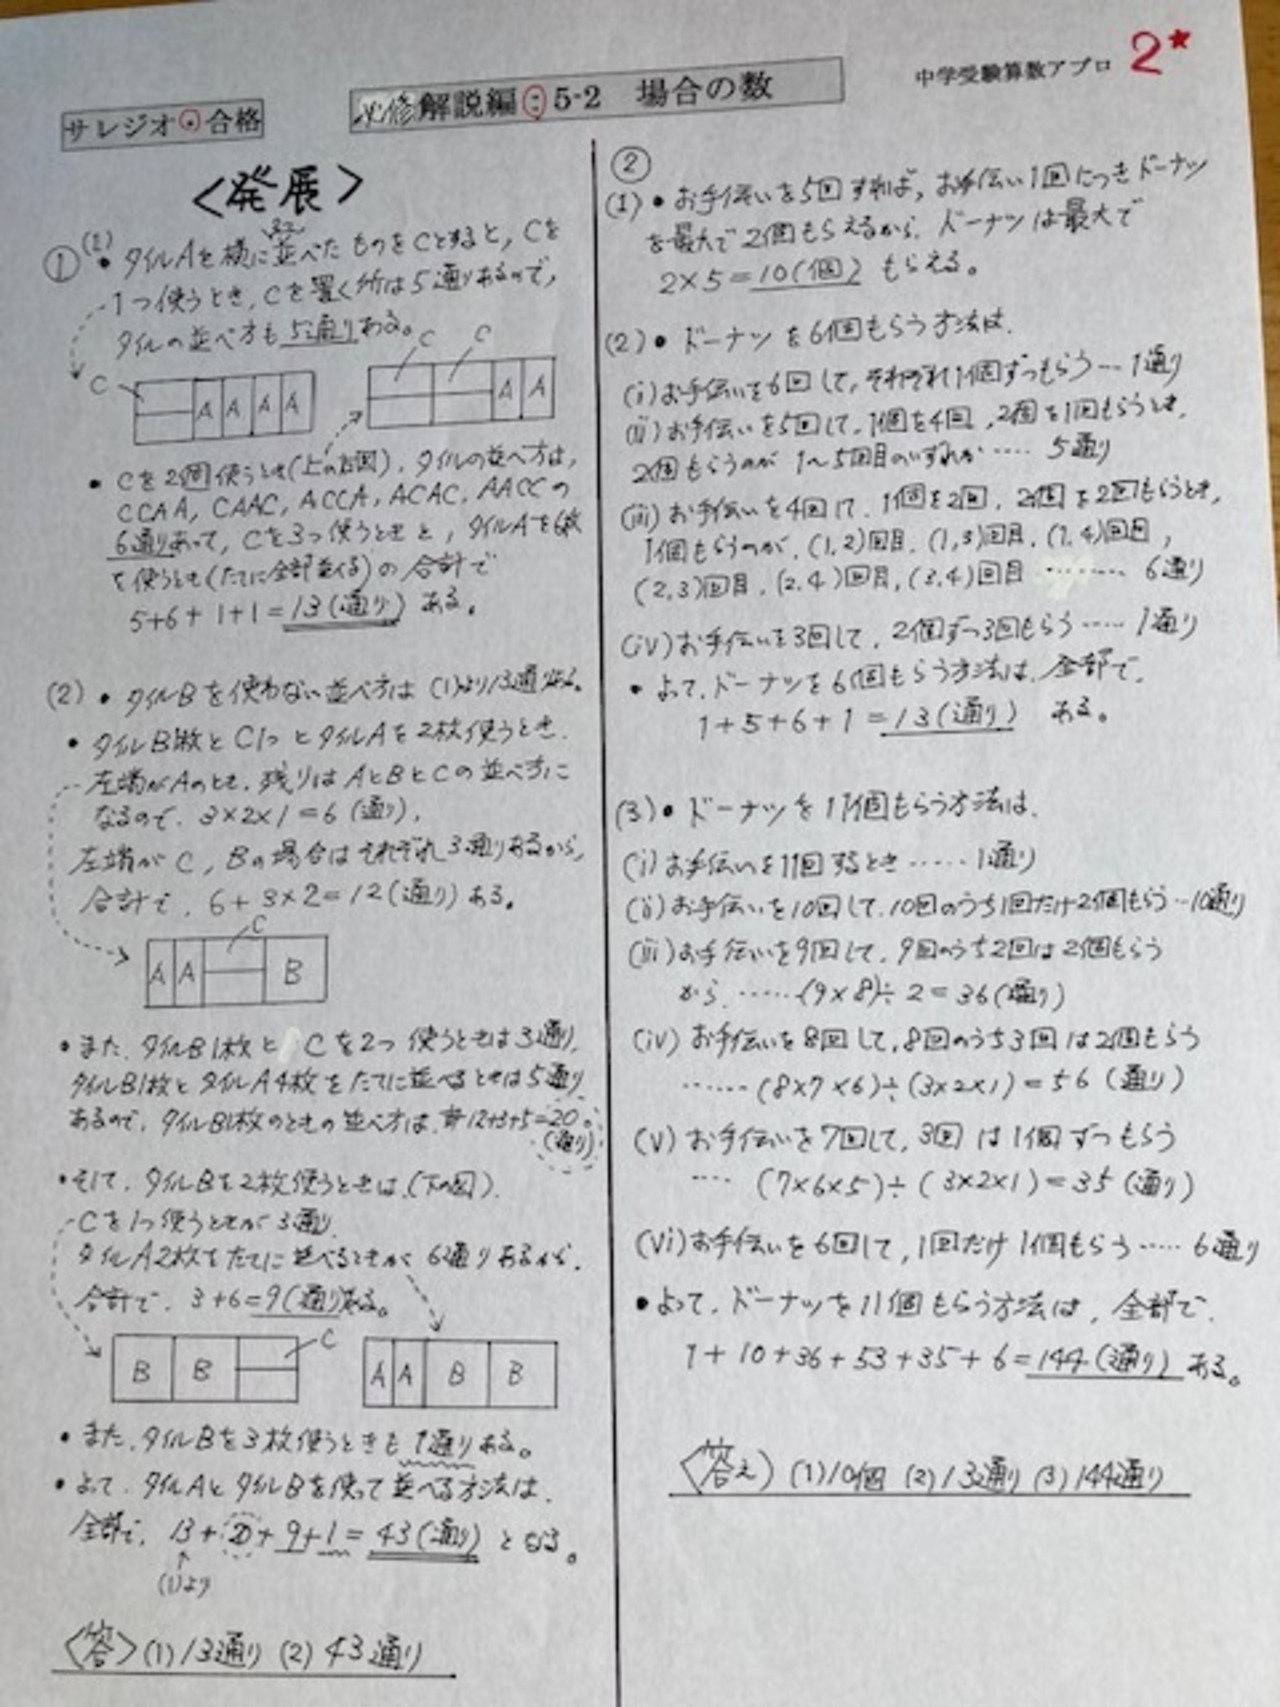 中学受験算数アプロ 2★
サレジオ・合格
必修解説編：5-2 場合の数
＜発展＞
①(1)・タイルAを横に並べたものをCとすると、Cを
1つ使うとき、Cを置く所は5通りあるので、
タイルの並べ方も5通りある。
C C
C A A A A A A
・Cを2個使うとき(上の右図)、タイルの並べ方は、
CCAA, CAAC, ACCA, ACAC, AACCの
6通りあって、Cを3つ使うときと、タイルAを6枚
を使うとき(たてに全部並べる)の合計で
5+6+1+1=13(通り)ある。
(2)・タイルBを使わない並べ方は(1)より13通りある。
・タイルB1枚とC1つとタイルAを2枚使うとき、
左端がAのとき、残りはAとBとCの並べ方に
なるので、3×2×1=6(通り)、
左端がC, Bの場合はそれぞれ3通りあるから、
合計で、6+3×2=12(通り)ある。
C
A A B
・また、タイルB1枚とCを2つ使うときは3通り、
タイルB1枚とタイルA4枚をたてに並べるときは5通り
あるので、タイルB1枚のときの並べ方は、12+3+5=20。
(通り)
・そして、タイルBを2枚使うときは、(下の図)、
Cを1つ使うときが3通り、
タイルA2枚をたてに並べるときが6通りあるから、
合計で、3+6=9(通り)ある。
B B C A A B B
・また、タイルBを3枚使うときも1通りある。
・よって、タイルAとタイルBを使って並べる方法は、
全部で、13+20+9+1=43(通り)となる。
(1)より
＜答＞(1)13通り (2)43通り
②
(1)・お手伝いを5回すれば、お手伝い1回につきドーナツ
を最大で2個もらえるから、ドーナツは最大で
2×5=10(個)もらえる。
(2)・ドーナツを6個もらう方法は、
(i)お手伝いを6回して、それぞれ1個ずつもらう…1通り
(ii)お手伝いを5回して、1個を4回、2個を1回もらうとき、
2個もらうのが1〜5回目のいずれか……5通り
(iii)お手伝いを4回して、1個を2回、2個を2回もらうとき、
1個もらうのが、(1,2)回目、(1,3)回目、(1,4)回目、
(2,3)回目、(2,4)回目、(3,4)回目………6通り
(iv)お手伝いを3回して、2個ずつ3回もらう……1通り
・よって、ドーナツを6個もらう方法は、全部で、
1+5+6+1=13(通り)ある。
(3)・ドーナツを11個もらう方法は、
(i)お手伝いを11回するとき……1通り
(ii)お手伝いを10回して、10回のうち1回だけ2個もらう…10通り
(iii)お手伝いを9回して、9回のうち2回は2個もらう
から、……(9×8)÷2=36(通り)
(iv)お手伝いを8回して、8回のうち3回は2個もらう
……(8×7×6)÷(3×2×1)=56(通り)
(v)お手伝いを7回して、3回は1個ずつもらう
……(7×6×5)÷(3×2×1)=35(通り)
(vi)お手伝いを6回して、1回だけ1個もらう……6通り
・よって、ドーナツを11個もらう方法は、全部で、
1+10+36+53+35+6=144(通り)ある。
＜答え＞(1)10個 (2)13通り (3)144通り